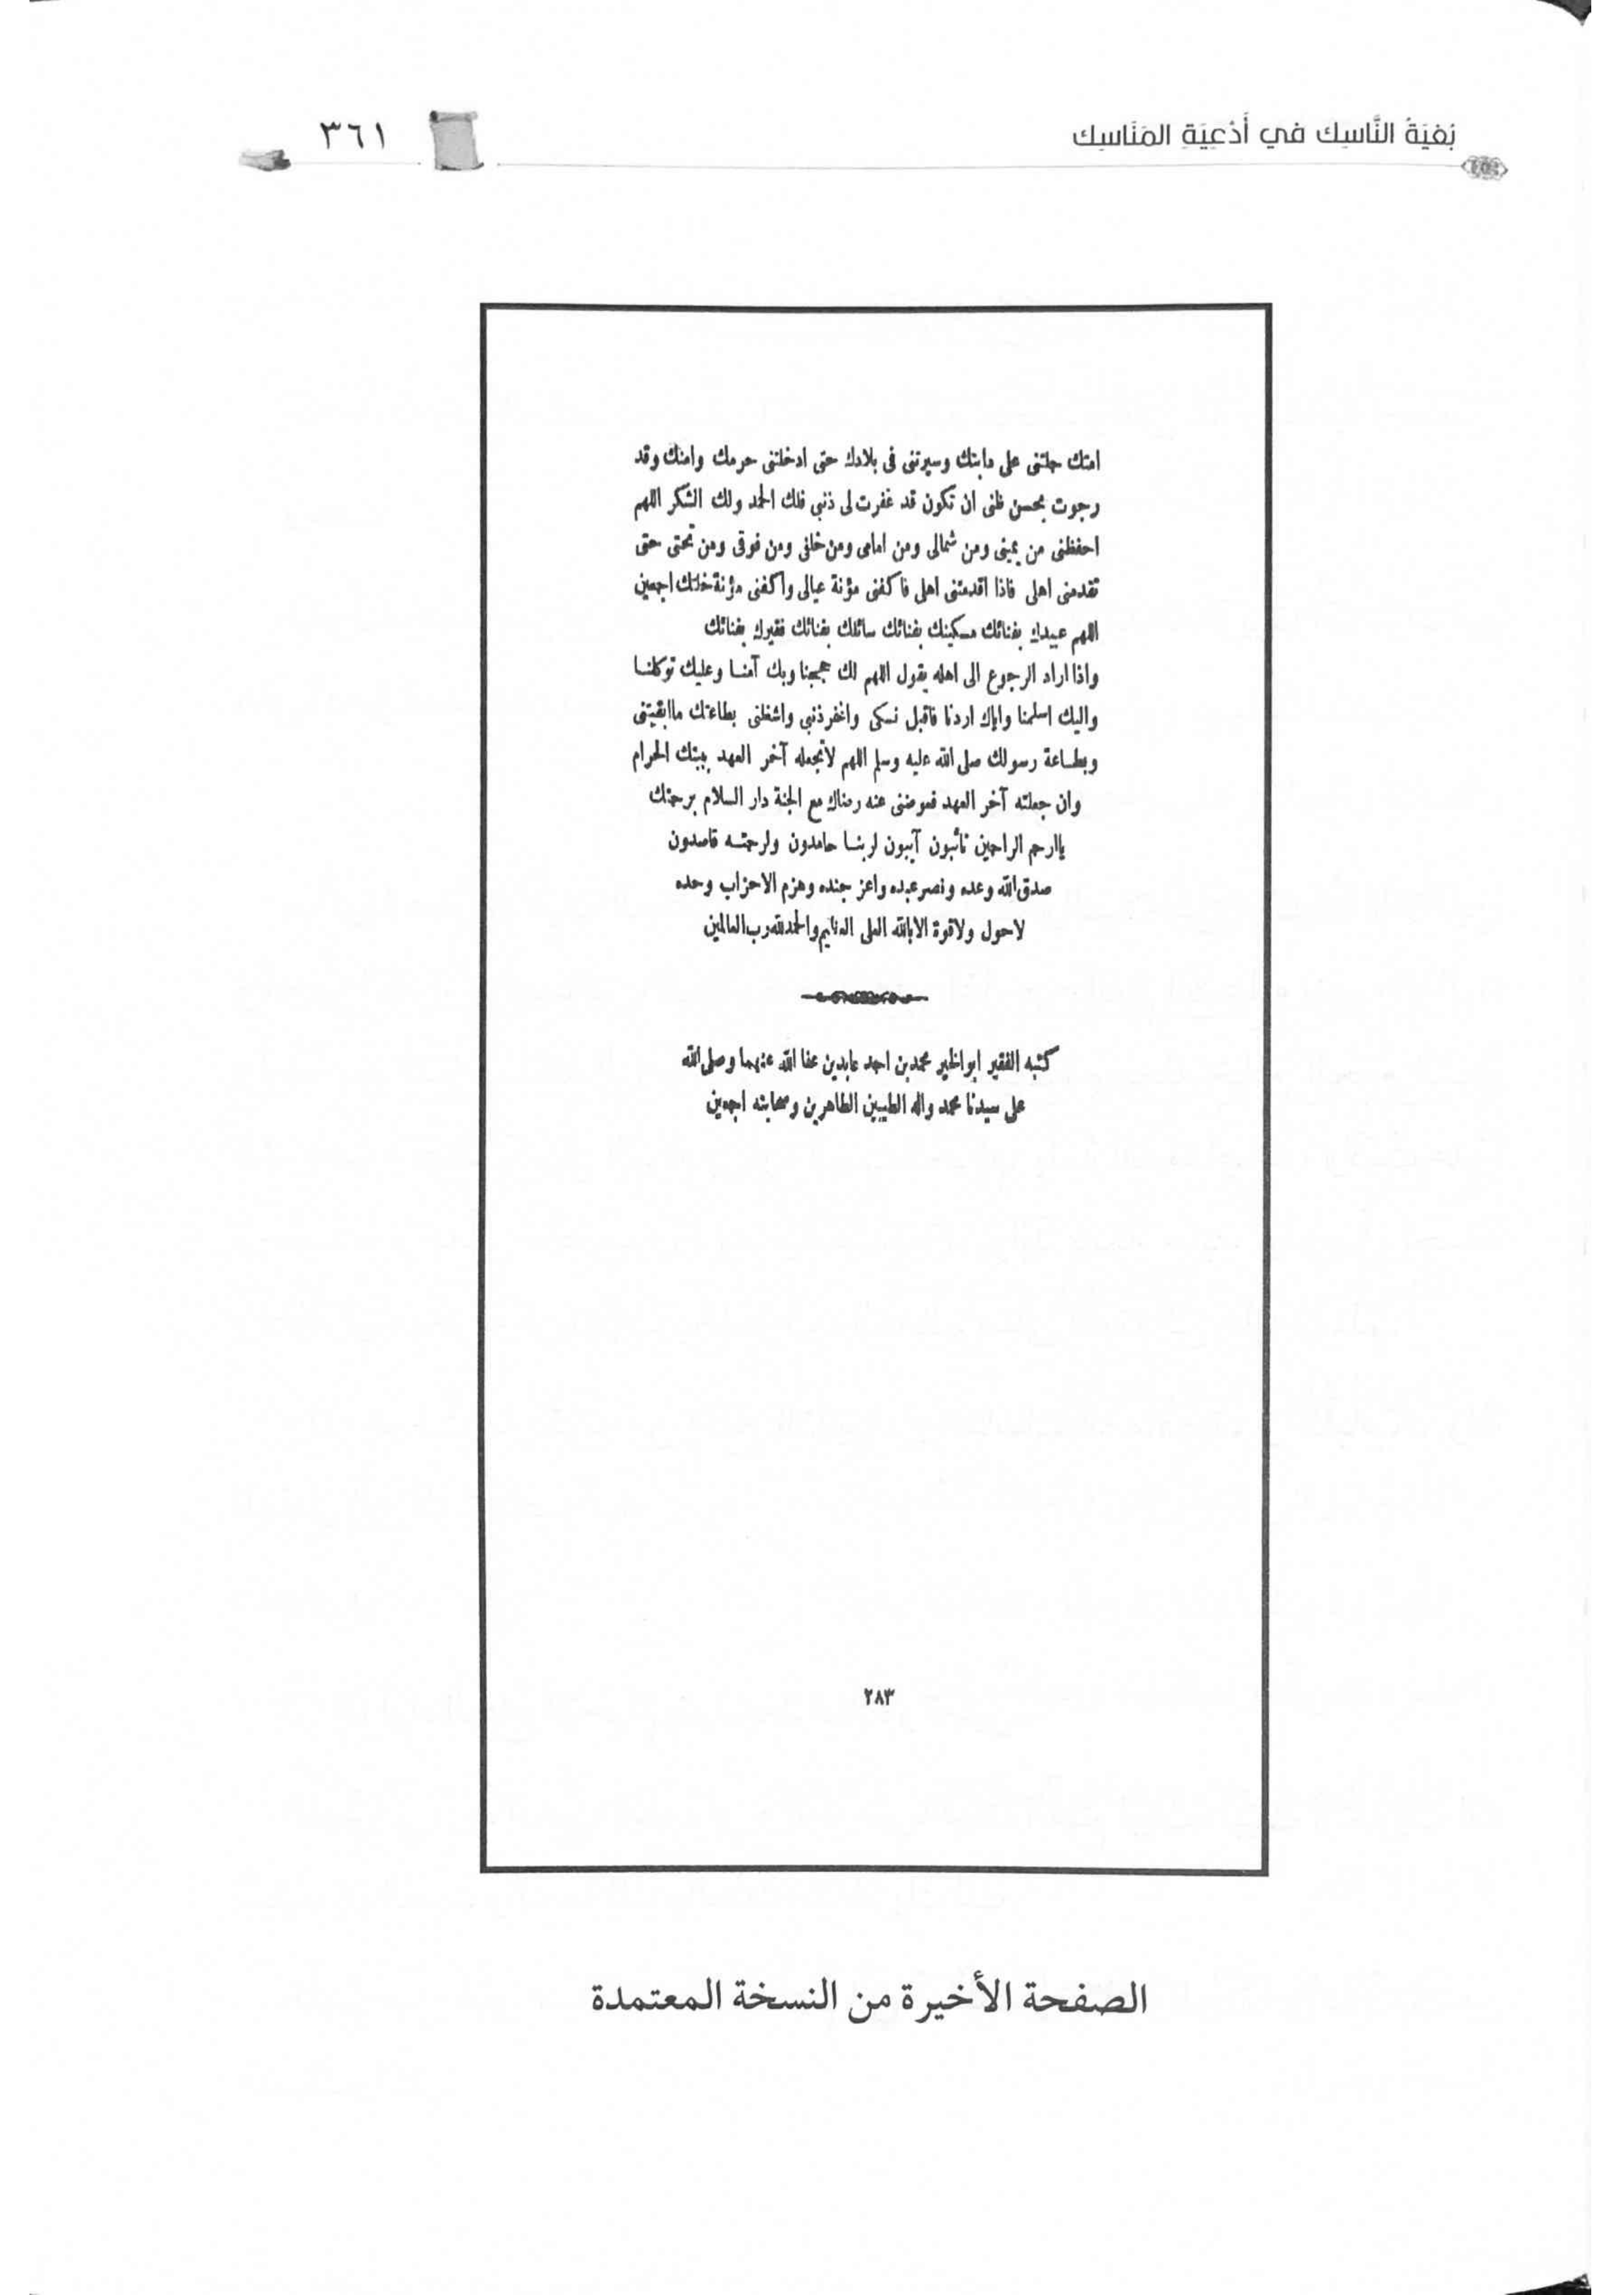 بُغْيَةُ النَّاسِك في أَدْعِيَةِ المَنَاسِك
٣٦١
امتك حملتنى على دابتك وسيرتنى فى بلادك حتى ادخلتنى حرمك وامنك وقد
رجوت بحسن ظنى ان تكون قد غفرت لى ذنبي فلك الحمد ولك الشكر اللهم
احفظنى من يمينى ومن شمالى ومن امامى ومن خلفى ومن فوقى ومن تحتى حتى
تقدمنى اهلى فاذا اقدمتنى اهلى فاكفنى مؤنة عيالى واكفنى مؤنة خلقك اجمعين
اللهم عبيدك بفنائك مسكينك بفنائك سائلك بفنائك فقيرك بفنائك
واذا اراد الرجوع الى اهله يقول اللهم لك حججنا وبك آمنا وعليك توكلنا
واليك اسلمنا واياك اردنا فاقبل نسكى واغفر ذنبي واشغلنى بطاعتك ماابقيتنى
وبطاعة رسولك صلى الله عليه وسلم اللهم لاتجعله آخر العهد ببيتك الحرام
وان جعلته آخر العهد فعوضنى عنه رضاك مع الجنة دار السلام برحمتك
ياارحم الراحمين تائبون آيبون لربنا حامدون ولرحمته قاصدون
صدق الله وعده ونصر عبده واعز جنده وهزم الاحزاب وحده
لاحول ولاقوة الابالله العلى العظيم والحمدلله رب العالمين
كتبه الفقير ابوالخير محمد بن احمد عابدين عفا الله عنهما وصلى الله
على سيدنا محمد واله الطيبين الطاهرين وصحابته اجمعين
٢٨٣
الصفحة الأخيرة من النسخة المعتمدة